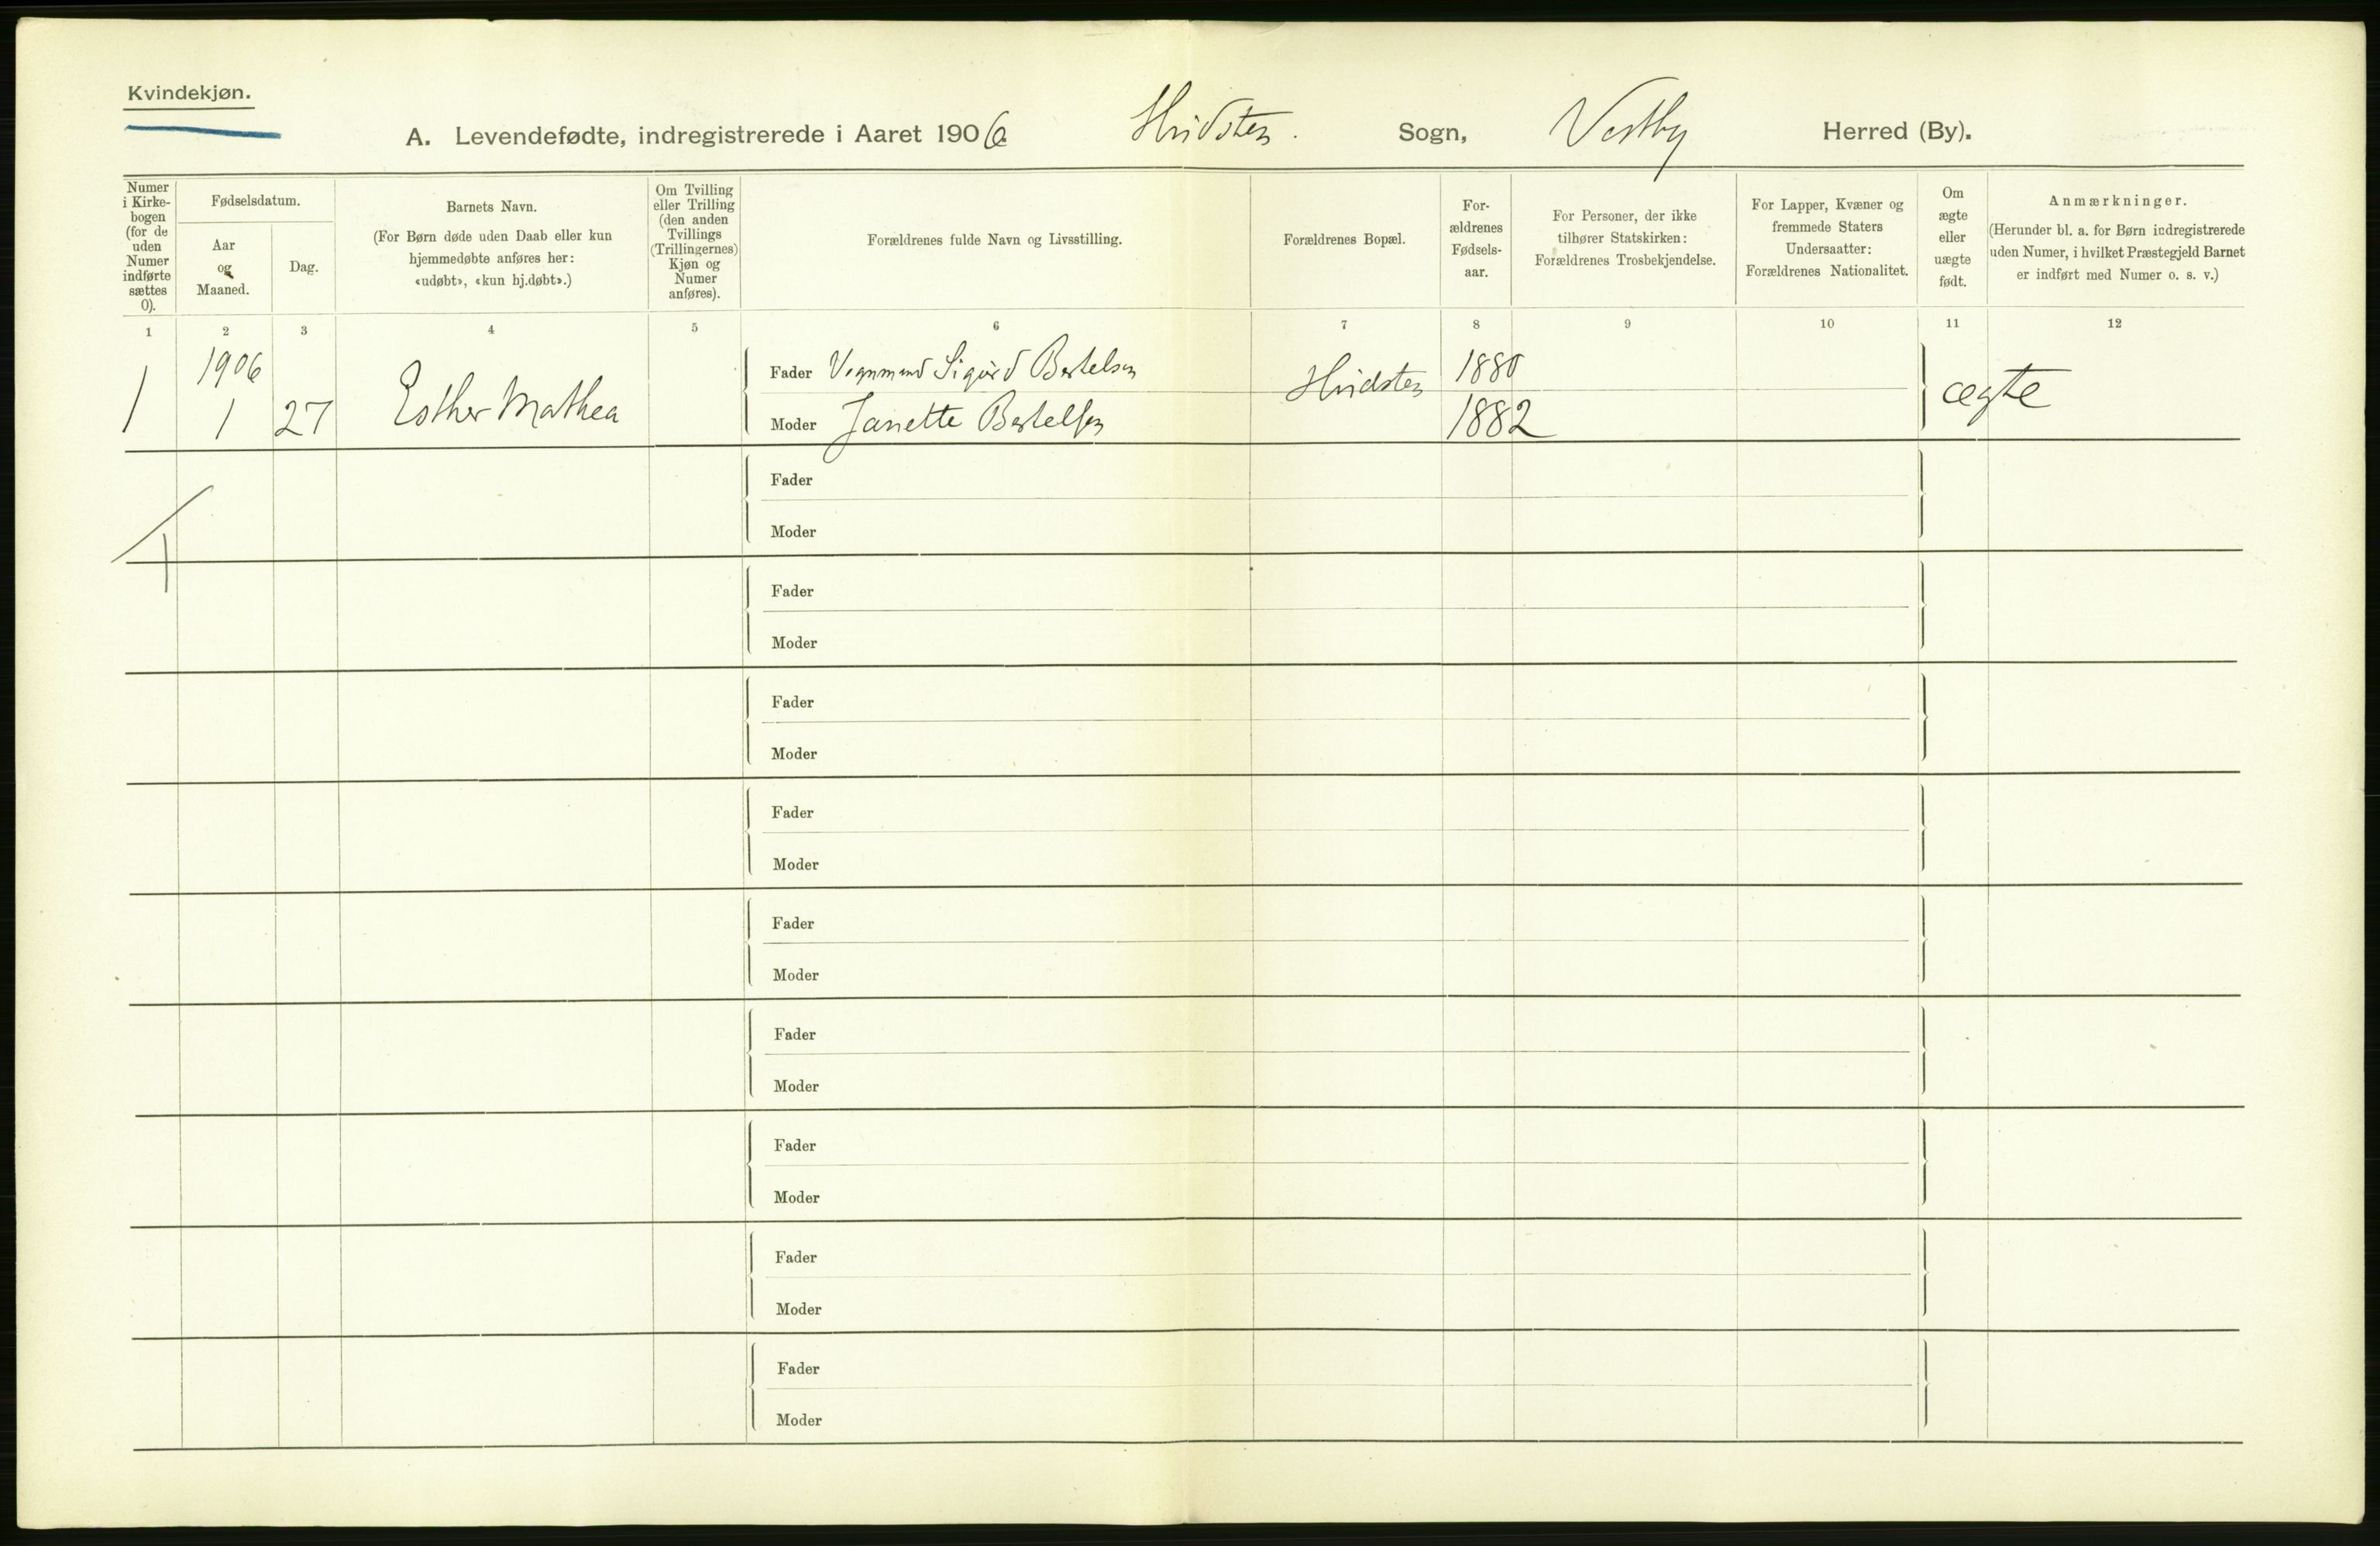 Kvindekjøn.
A. Levendefødte, indregistrerede i Aaret 1906 Hvidsten. Sogn, Vestby Herred (By).
Numer i Kirke-bogen (for de uden Numer indførte sættes 0).
Fødselsdatum.
Aar og Maaned.
Dag.
Barnets Navn.
(For Børn døde uden Daab eller kun
hjemmedøbte anføres her:
«udøbt», «kun hj.døbt».)
Om Tvilling
eller Trilling
(den anden
Tvillings
(Trillingernes)
Kjøn og
Numer
anføres).
Forældrenes fulde Navn og Livsstilling.
Forældrenes Bopæl.
For-
ældrenes
Fødsels-
aar.
For Personer, der ikke
tilhører Statskirken:
Forældrenes Trosbekjendelse.
For Lapper, Kvæner og
fremmede Staters
Undersaatter:
Forældrenes Nationalitet.
Om
ægte
eller
uægte
født.
Anmærkninger.
(Herunder bl. a. for Børn indregistrerede
uden Numer, i hvilket Præstegjeld Barnet
er indført med Numer o. s. v.)
1 2 3 4 5 6 7 8 9 10 11 12
1 1906 1 27 Esther Mathea
Fader Sigurd Bertelsen Hvidsten 1880 ægte
Moder Janette Bertelsen 1882
Fader
Moder
1
Fader
Moder
Fader
Moder
Fader
Moder
Fader
Moder
Fader
Moder
Fader
Moder
Fader
Moder
Fader
Moder